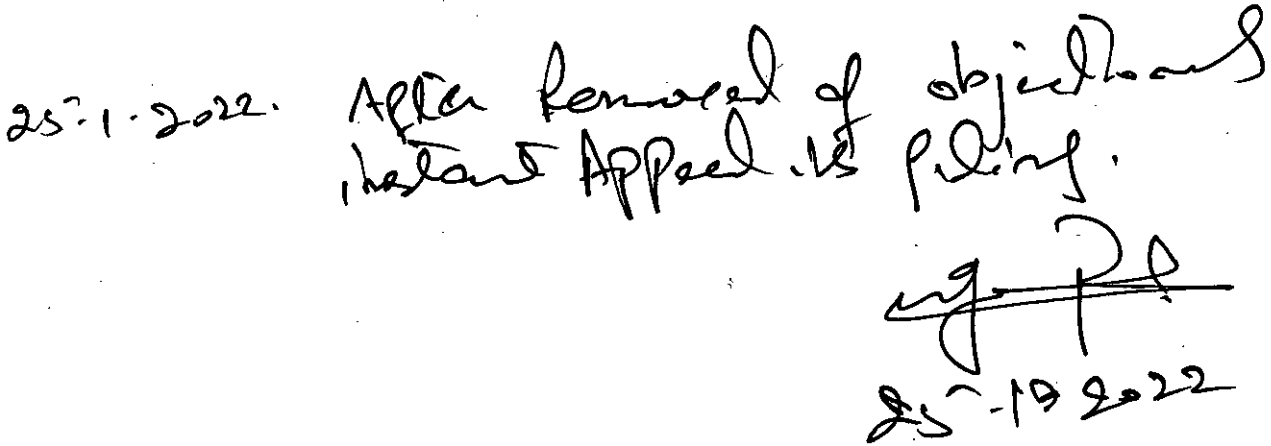 25-1-2022. After Removal of objections
instant Appeal is filing.
25-1-2022